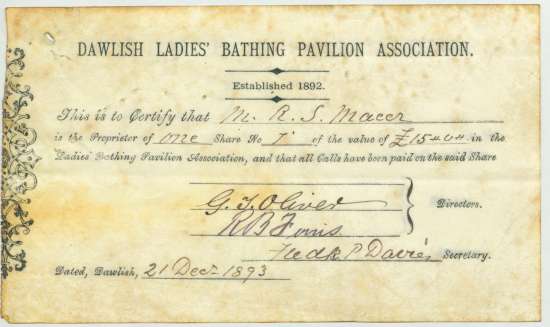 DAWLISH LADIES' BATHING PAVILION ASSOCIATION.
Established 1892.
This is to Certify that M. R. S. Macer
is the Proprietor of one Share No 7 of the value of £15-0-0 in the
Ladies' Bathing Pavilion Association, and that all Calls have been paid on the said Share
G. T. Oliver
Directors.
R B
Fredk P Davies Secretary.
Dated, Dawlish, 21 Decr 1893